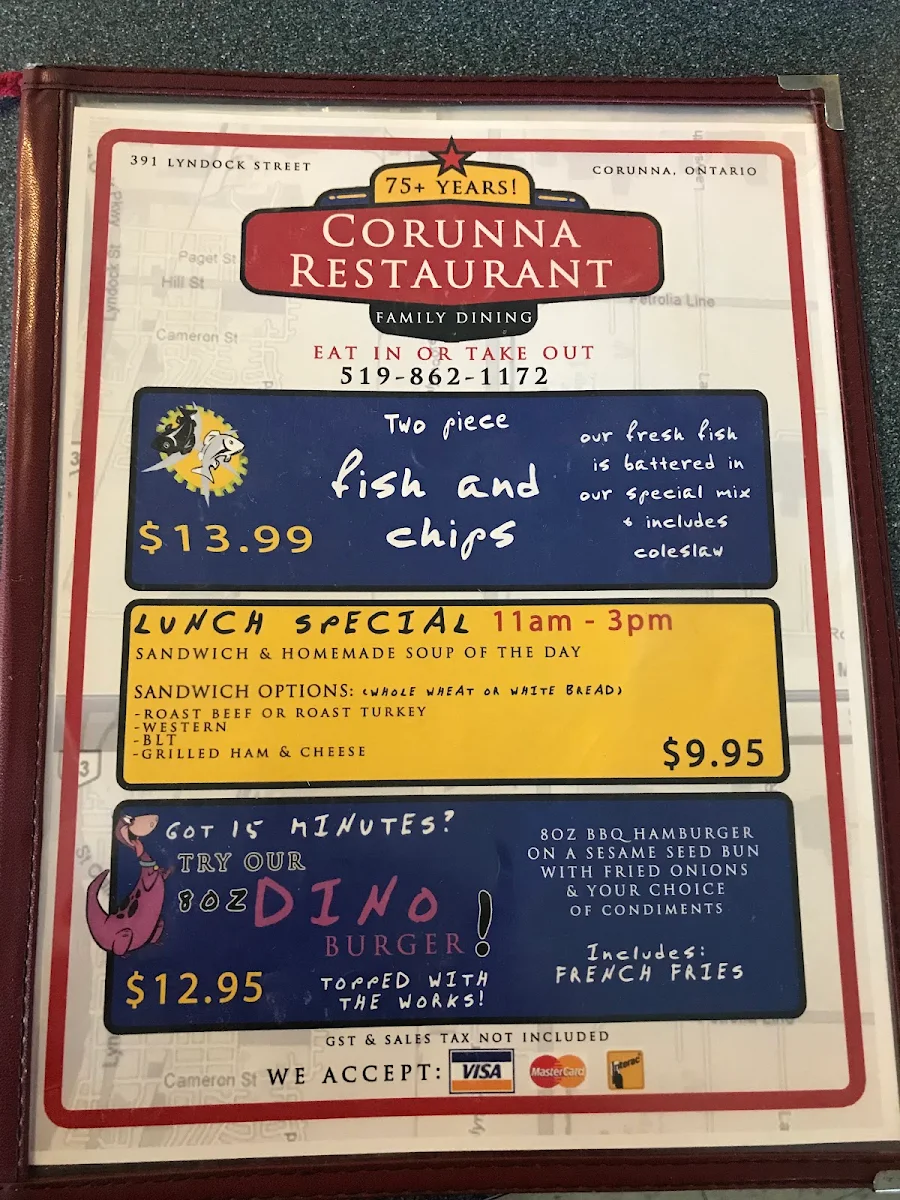 391 LYNDOCK STREET
CORUNNA, ONTARIO
75+ YEARS!
CORUNNA
RESTAURANT
FAMILY DINING
EAT IN OR TAKE OUT
519-862-1172
Lyndock St
Paget St
Hill St
Cameron St
Petrolia Line
Two piece
fish and
chips
$13.99
our fresh fish
is battered in
our special mix
& includes
coleslaw
LUNCH SPECIAL 11am - 3pm
SANDWICH & HOMEMADE SOUP OF THE DAY
SANDWICH OPTIONS: (WHOLE WHEAT OR WHITE BREAD)
-ROAST BEEF OR ROAST TURKEY
-WESTERN
-BLT
-GRILLED HAM & CHEESE
$9.95
GOT 15 MINUTES?
TRY OUR
8OZ DINO
BURGER!
$12.95
TOPPED WITH
THE WORKS!
8OZ BBQ HAMBURGER
ON A SESAME SEED BUN
WITH FRIED ONIONS
& YOUR CHOICE
OF CONDIMENTS
Includes:
FRENCH FRIES
GST & SALES TAX NOT INCLUDED
Cameron St
WE ACCEPT: VISA MasterCard Interac